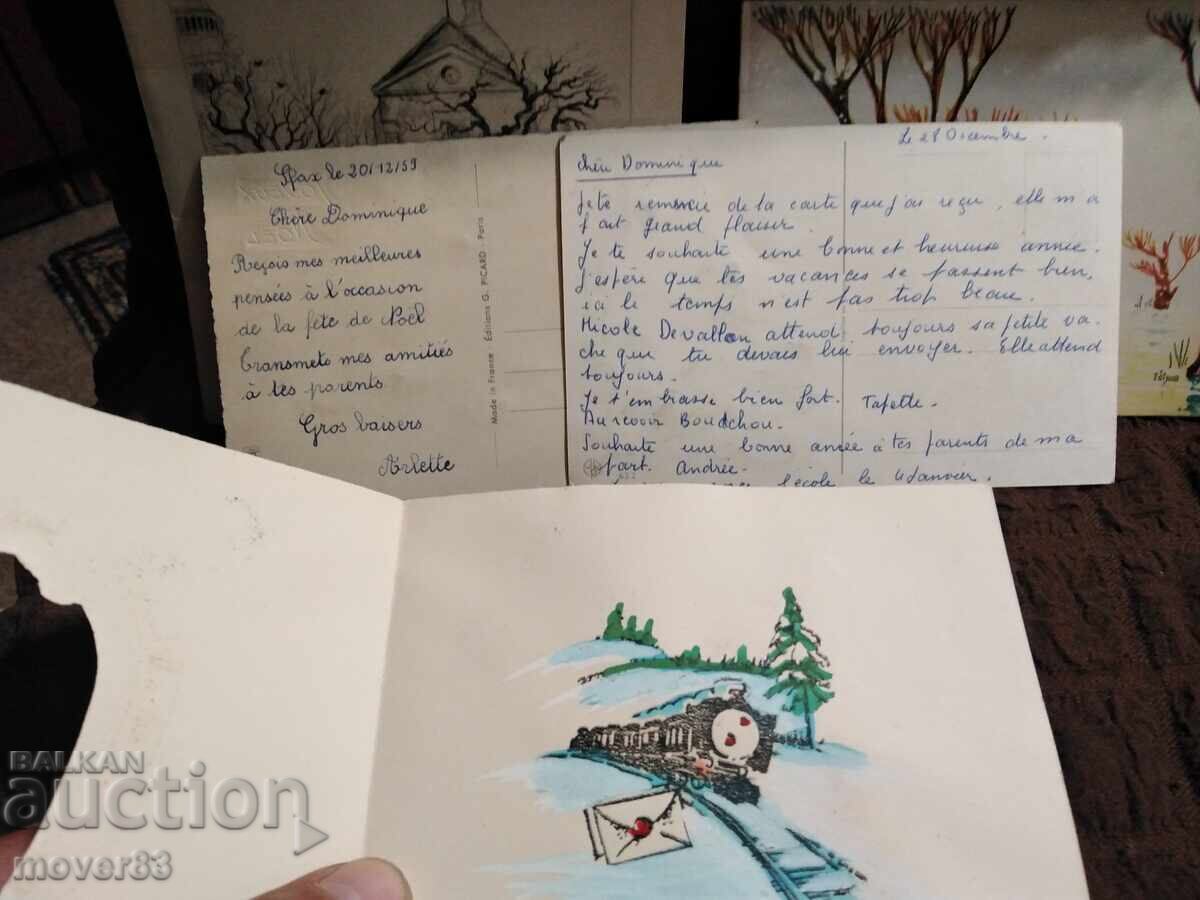 Sfax le 20/12/59
Chère Dominique
NOËL
Reçois mes meilleures
pensées à l'occasion
de la fête de Noël
Transmets mes amitiés
à tes parents
Gros baisers
Arlette
Made in France - Éditions G. PICARD - Paris
Le 28 Décembre.
Chère Dominique
Je te remercie de la carte que j'ai reçu, elle m'a
fait grand plaisir.
Je te souhaite une bonne et heureuse année.
J'espère que tes vacances se passent bien,
ici le temps n'est pas trop beau.
Nicole Devallon attend toujours sa petite va-
che que tu devais lui envoyer. Elle attend
toujours.
Je t'embrasse bien fort. Tapette.
Au revoir Boudchou.
Souhaite une bonne année à tes parents de ma
part. Andrée.
l'école le 4 Janvier.
BALKAN
auction
mover83